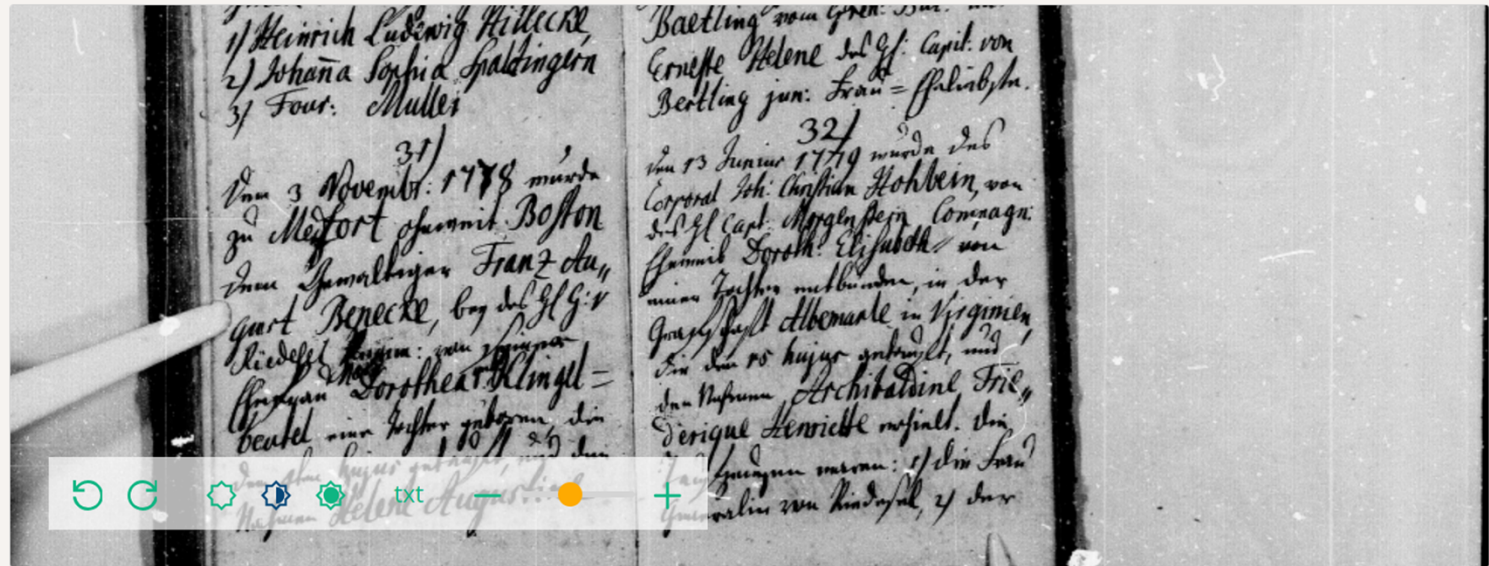 1) Heinrich Ludewig Hillecke,
2) Johanna Sophia Spaldingern
3) Four: Muller
31)
Den 3 Novembr: 1778 wurde
zu Medfort ohnweit Boston
dem Gewaltiger Franz Au„
gust Benecke, bey des Hl G: v
Riedesel von seiner
Ehefrau Dorothea Klingel=
beutel eine Tochter gebohren, die
den hujus getauft, und den
Nahmen Helene August
Baetling vom Gren: Bat:
Erneste Helene des Hl: Capit: von
Bertling jun: Frau=Eheliebste.
32)
den 13 Junius 1779 wurde des
Corporal Joh: Christian Hohbein, von
des Hl Capt: Morgenstern Compagn:
Eheweib Doroth: Elisabeth von
einer Tochter entbunden, in der
Grafschaft Albemarle in Virginien,
die den 15 hujus getauft, und
den Nahmen Archibaldine Frie„
derique Henriette erhielt. Die
Taufzeugen waren: 1) die Frau
Generalin von Riedesel, 2) der
txt